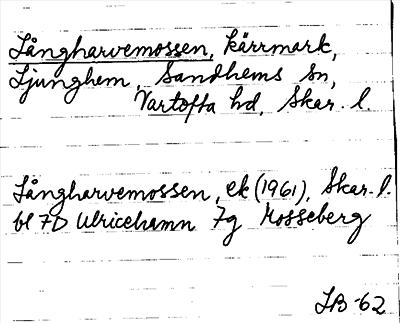 Långharvemossen, kärrmark,
Ljunghem, Sandhems sn,
Vartofta hd, Skar. l.
Långharvemossen, ek (1961), Skar. l.
bl 7D Ulricehamn 7g Mosseberg
IB -62